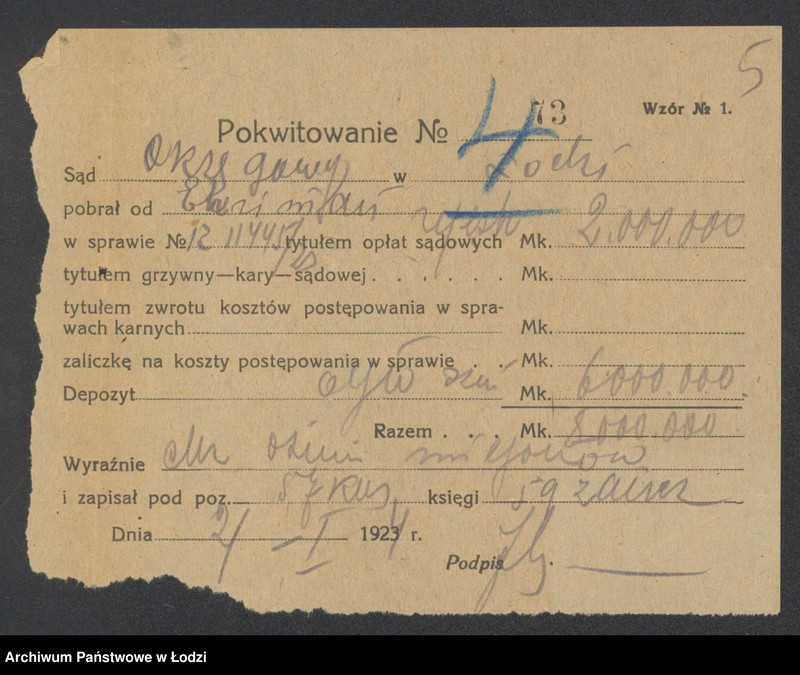 5
Wzór № 1.
Pokwitowanie № 4 73
Sąd Okręgowy w Łodzi
pobrał od
w sprawie № 12 11445/23 tytułem opłat sądowych Mk. 2.000.000
tytułem grzywny—kary—sądowej . . . . . . Mk.
tytułem zwrotu kosztów postępowania w spra-
wach karnych Mk.
zaliczkę na koszty postępowania w sprawie . Mk.
Depozyt ogłoszeń Mk. 6000.000.
Razem . . . Mk. 8000.000
Wyraźnie Mk ośm miljonów
i zapisał pod poz. księgi
Dnia 2/ - I 1924 r.
Podpis
Archiwum Państwowe w Łodzi